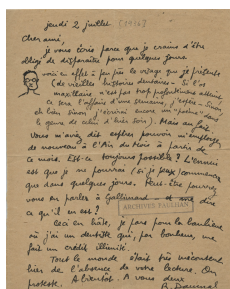 jeudi 2 juillet (1936)
Cher ami,
je vous écris parce que je crains d'être
obligé de disparaître pour quelques jours
voici en effet à peu près le visage que je présente
(de vieilles histoires dentaires - Si l'os
maxillaire n'est pas trop profondément atteint
ce sera l'affaire d'une semaine, j'espère - Sinon
eh bien sinon j'écrirai encore un "poème" dans
le genre de celui d'hier soir). Mais au fait
Vous m'aviez dit espérer pouvoir m'employer
de nouveau à l'Air du Mois à partir de
ce mois. Est-ce toujours possible ? L'ennui
est que je ne pourrai (si je peux) commencer
que dans quelques jours. Peut-être pourrez
vous en parler à Gallimard et me dire
ce qu'il en est ?
ARCHIVES PAULHAN
Ceci en hâte, je pars pour la banlieue
où j'ai un dentiste qui, par bonheur, me
fait un crédit illimité.
Tout le monde était très mécontent
hier de l'absence de votre lecture. On
proteste. A bientôt. A vous deux
R. Daumal